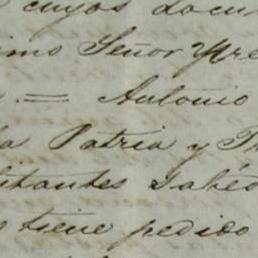 cuyos docu
imo Señor Pre
. = Antonio
la Patria y Tr
litantes Sabed
tiene pedido